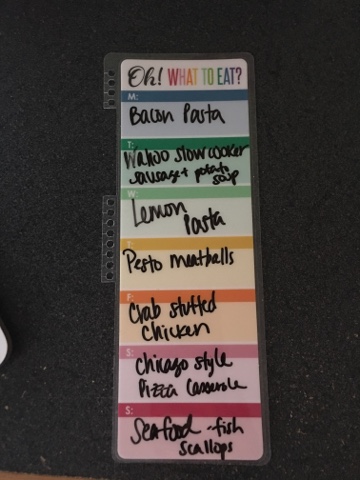 Oh! WHAT TO EAT?
M:
Bacon Pasta
T:
slow cooker
sausage + potato
soup
W:
Lemon
Pasta
T:
Pesto meatballs
F:
Crab stuffed
Chicken
S:
Chicago style
Pizza Casserole
S:
Seafood - fish
scallops